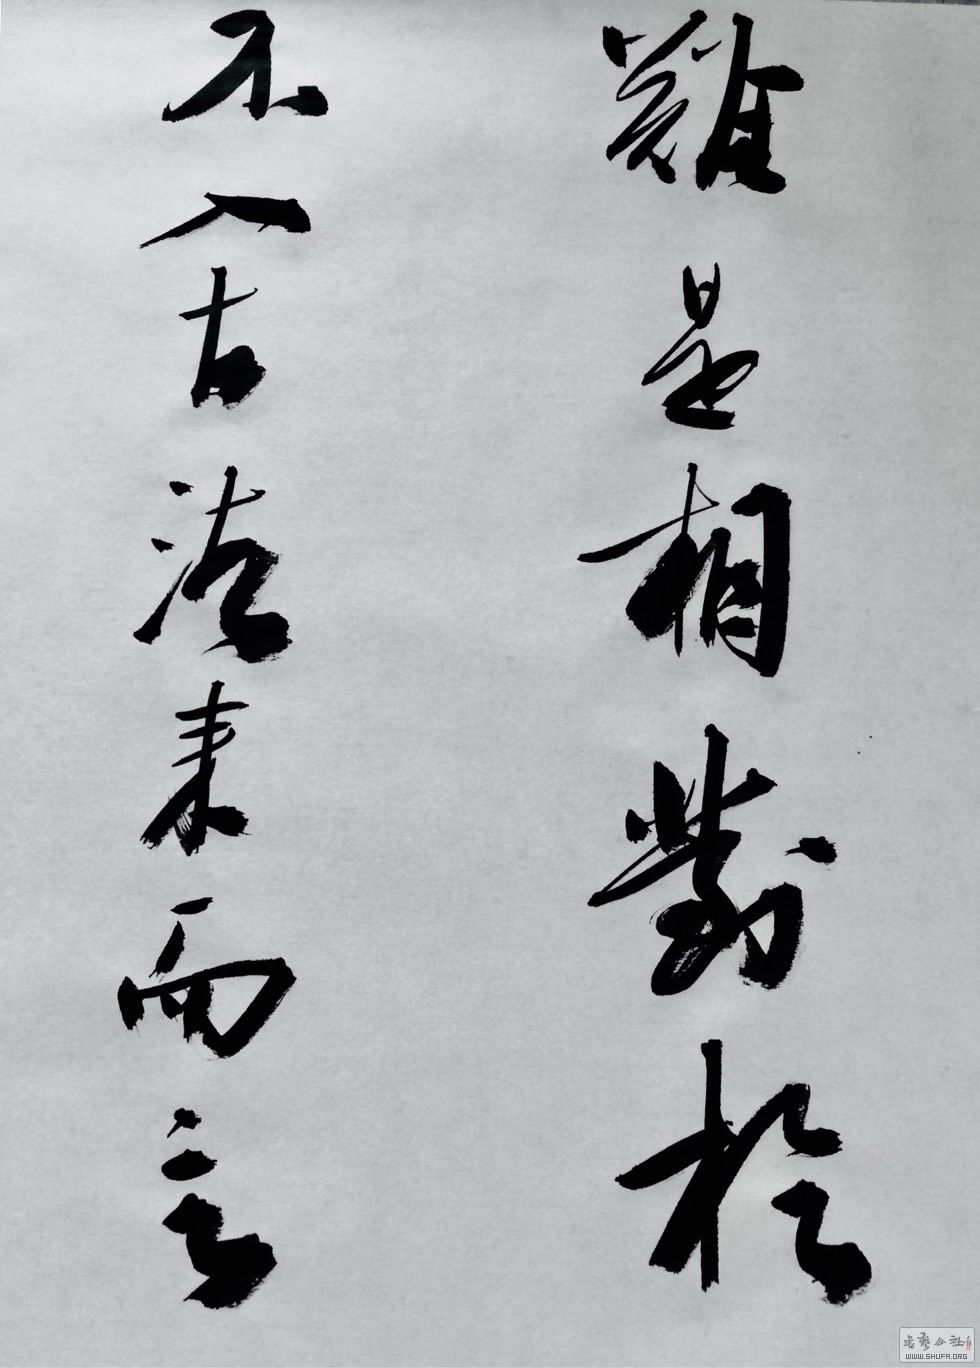 難是相對於
不入古法来而言
書藝公社
WWW.SHUFA.ORG